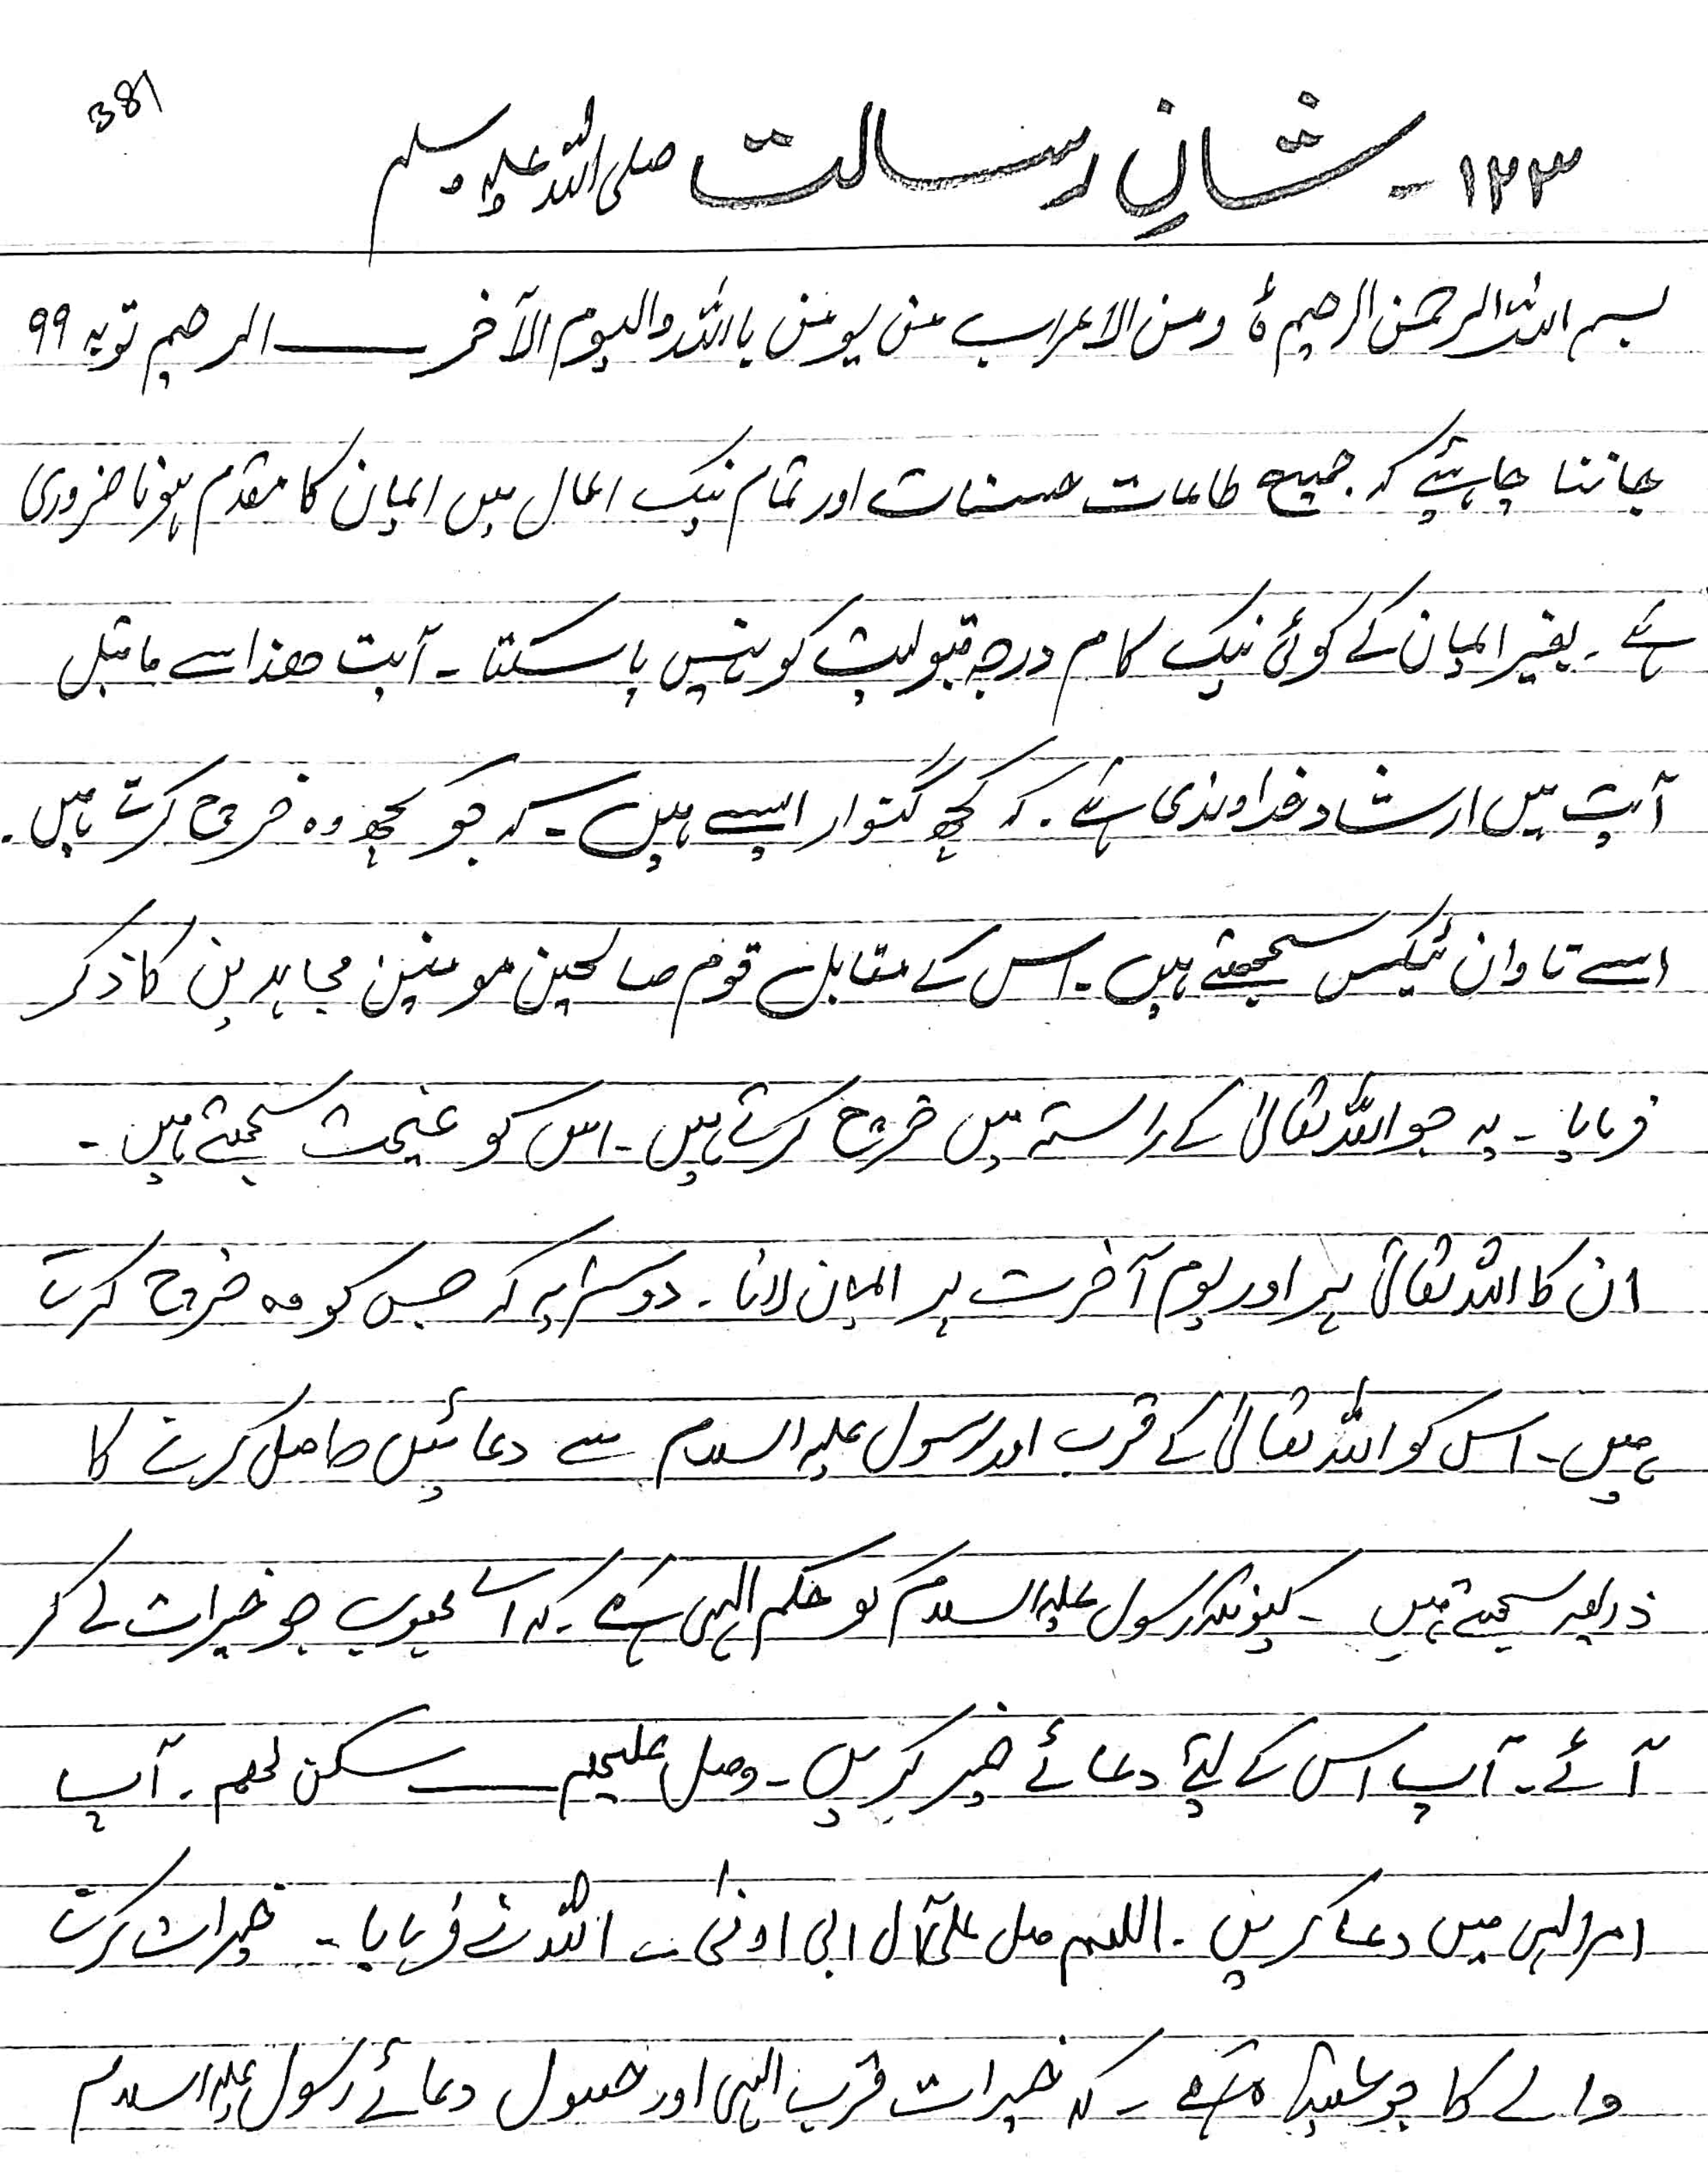 381
۱۲۳ ۔ شانِ رسالت صلی اللہ علیہ وسلم
بسم اللہ الرحمٰن الرحیم ۵ ومن الاعراب من یومن باللہ والیوم الآخر ــــــ الرحیم توبہ ۹۹
جاننا چاہئیے کہ جمیع طاعات حسنات اور تمام نیک اعمال میں ایمان کا مقدم ہونا ضروری
ہے ۔ بغیر ایمان کے کوئی نیک کام درجہ قبولیت کو نہیں پا سکتا ۔ آیت ھذا سے ماقبل
آیت میں ارشاد خداوندی ہے ۔ کہ کچھ گنوار ایسے ہیں ۔ کہ جو کچھ وہ خرچ کرتے ہیں ۔
اسے تاوان ٹیکس سمجھتے ہیں ۔ اس کے مقابل قوم صالحین مومنین مجاہدین کا ذکر
فرمایا ۔ یہ جو اللہ تعالیٰ کے راستہ میں خرچ کرتے ہیں ۔ اس کو غنیمت سمجھتے ہیں ۔
ان کا اللہ تعالیٰ پر اور یوم آخرت پر ایمان لانا ۔ دوسرا یہ کہ جس کو وہ خرچ کرتے
ہیں ۔ اس کو اللہ تعالیٰ کے قرب اور رسول علیہ السلام سے دعائیں حاصل کرنے کا
ذریعہ سمجھتے ہیں ۔ کیونکہ رسول علیہ السلام کو حکم الہی ہے ۔ کہ اے محبوب جو خیرات لے کر
آئے ۔ آپ اس کے لیئے دعائے خیر کریں ۔ وصل علیھم ــــــ سکن لھم ۔ آپ
امر الہی میں دعا کریں ۔ اللھم صل علیٰ آل ابی اوفیٰ ۔ اللہ نے فرمایا ۔ خیرات کرنے
والے کا جو عقیدہ ہے ۔ کہ خیرات قرب الہی اور حصول دعائے رسول علیہ السلام